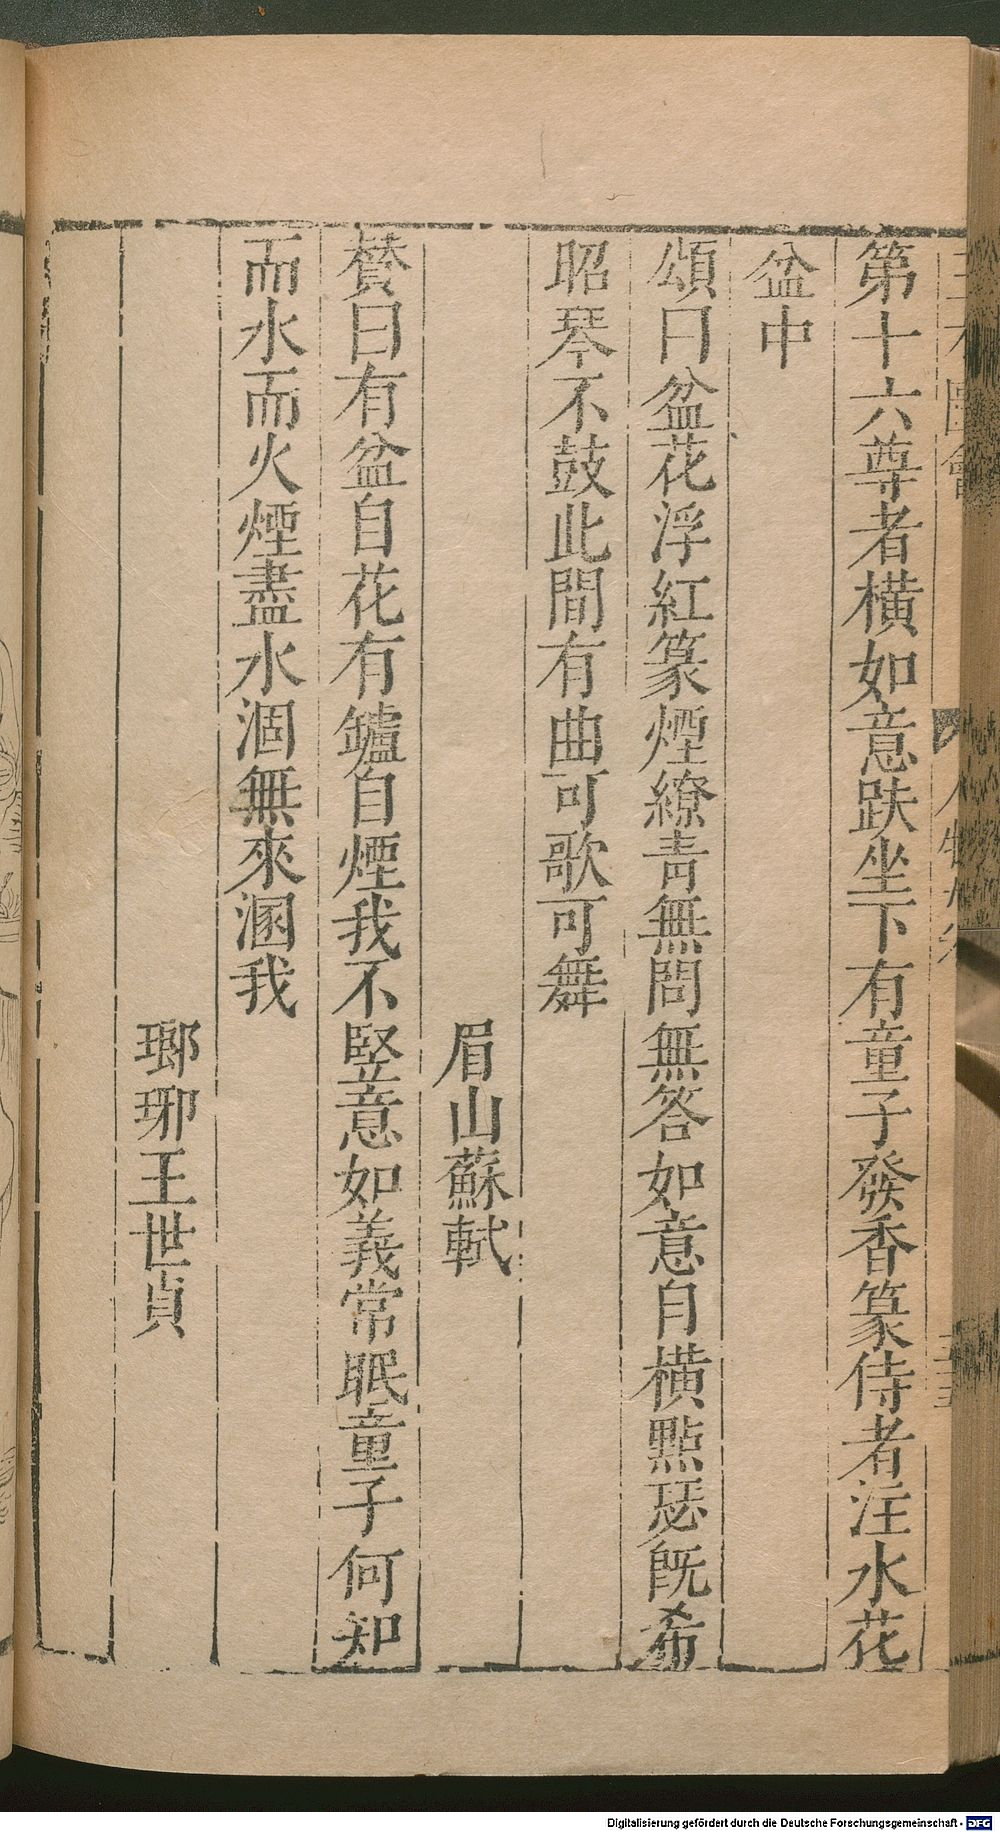 三才圖會
人物九卷
第十六尊者橫如意趺坐下有童子發香篆侍者注水花
盆中
頌曰盆花浮紅篆煙繚青無問無答如意自橫點瑟旣希
昭琴不鼓此間有曲可歌可舞
眉山蘇軾
賛曰有盆自花有鑪自煙我不竪意如義常眠童子何知
而水而火煙盡水涸無來溷我
瑯琊王世貞
Digitalisierung gefördert durch die Deutsche Forschungsgemeinschaft - DFG